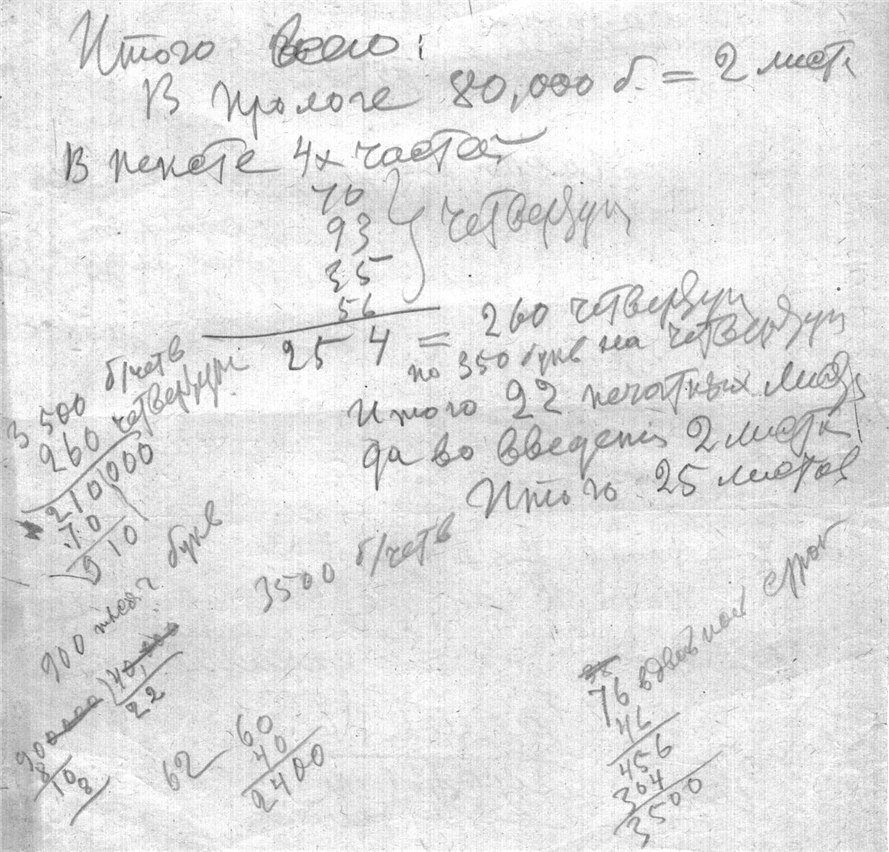 Итого всего:
В прологе 80,000 б. = 2 листа
В пакете 4х частей
70
93
35 } четвертушки
56
254 = 260 четвертуш
по 350 букв на четвертуш
Итого 22 печатных листа
да во введении 2 листа
Итого 25 листов
3500 б/четв
260 четвертуш
210000
70
910
900 тысяч букв
3500 б/четв
900000 | 40,000
8 22
10
8
62
60
40
2400
38
76 в двойной строк
46
456
304
3500